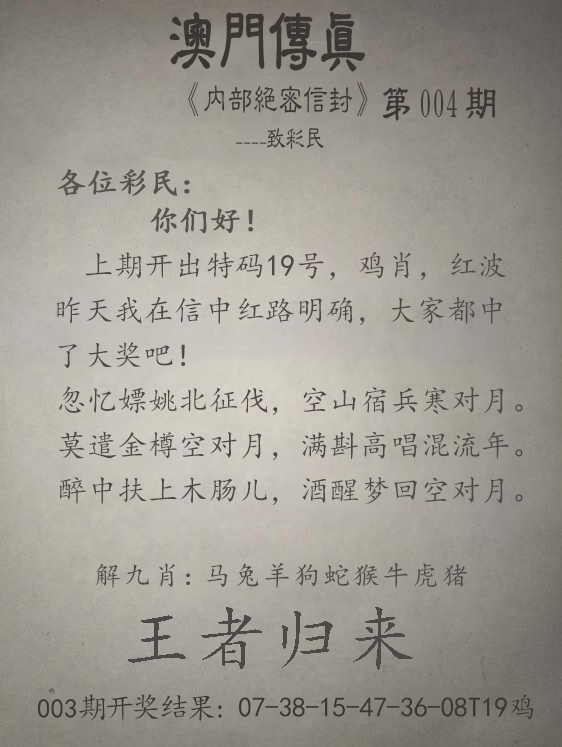 澳門傳眞
《内部絕密信封》第004期
----致彩民
各位彩民：
你们好！
上期开出特码19号，鸡肖，红波
昨天我在信中红路明确，大家都中
了大奖吧！
忽忆嫖姚北征伐，空山宿兵寒对月。
莫遣金樽空对月，满斟高唱混流年。
醉中扶上木肠儿，酒醒梦回空对月。
解九肖：马兔羊狗蛇猴牛虎猪
王者归来
003期开奖结果：07-38-15-47-36-08T19鸡